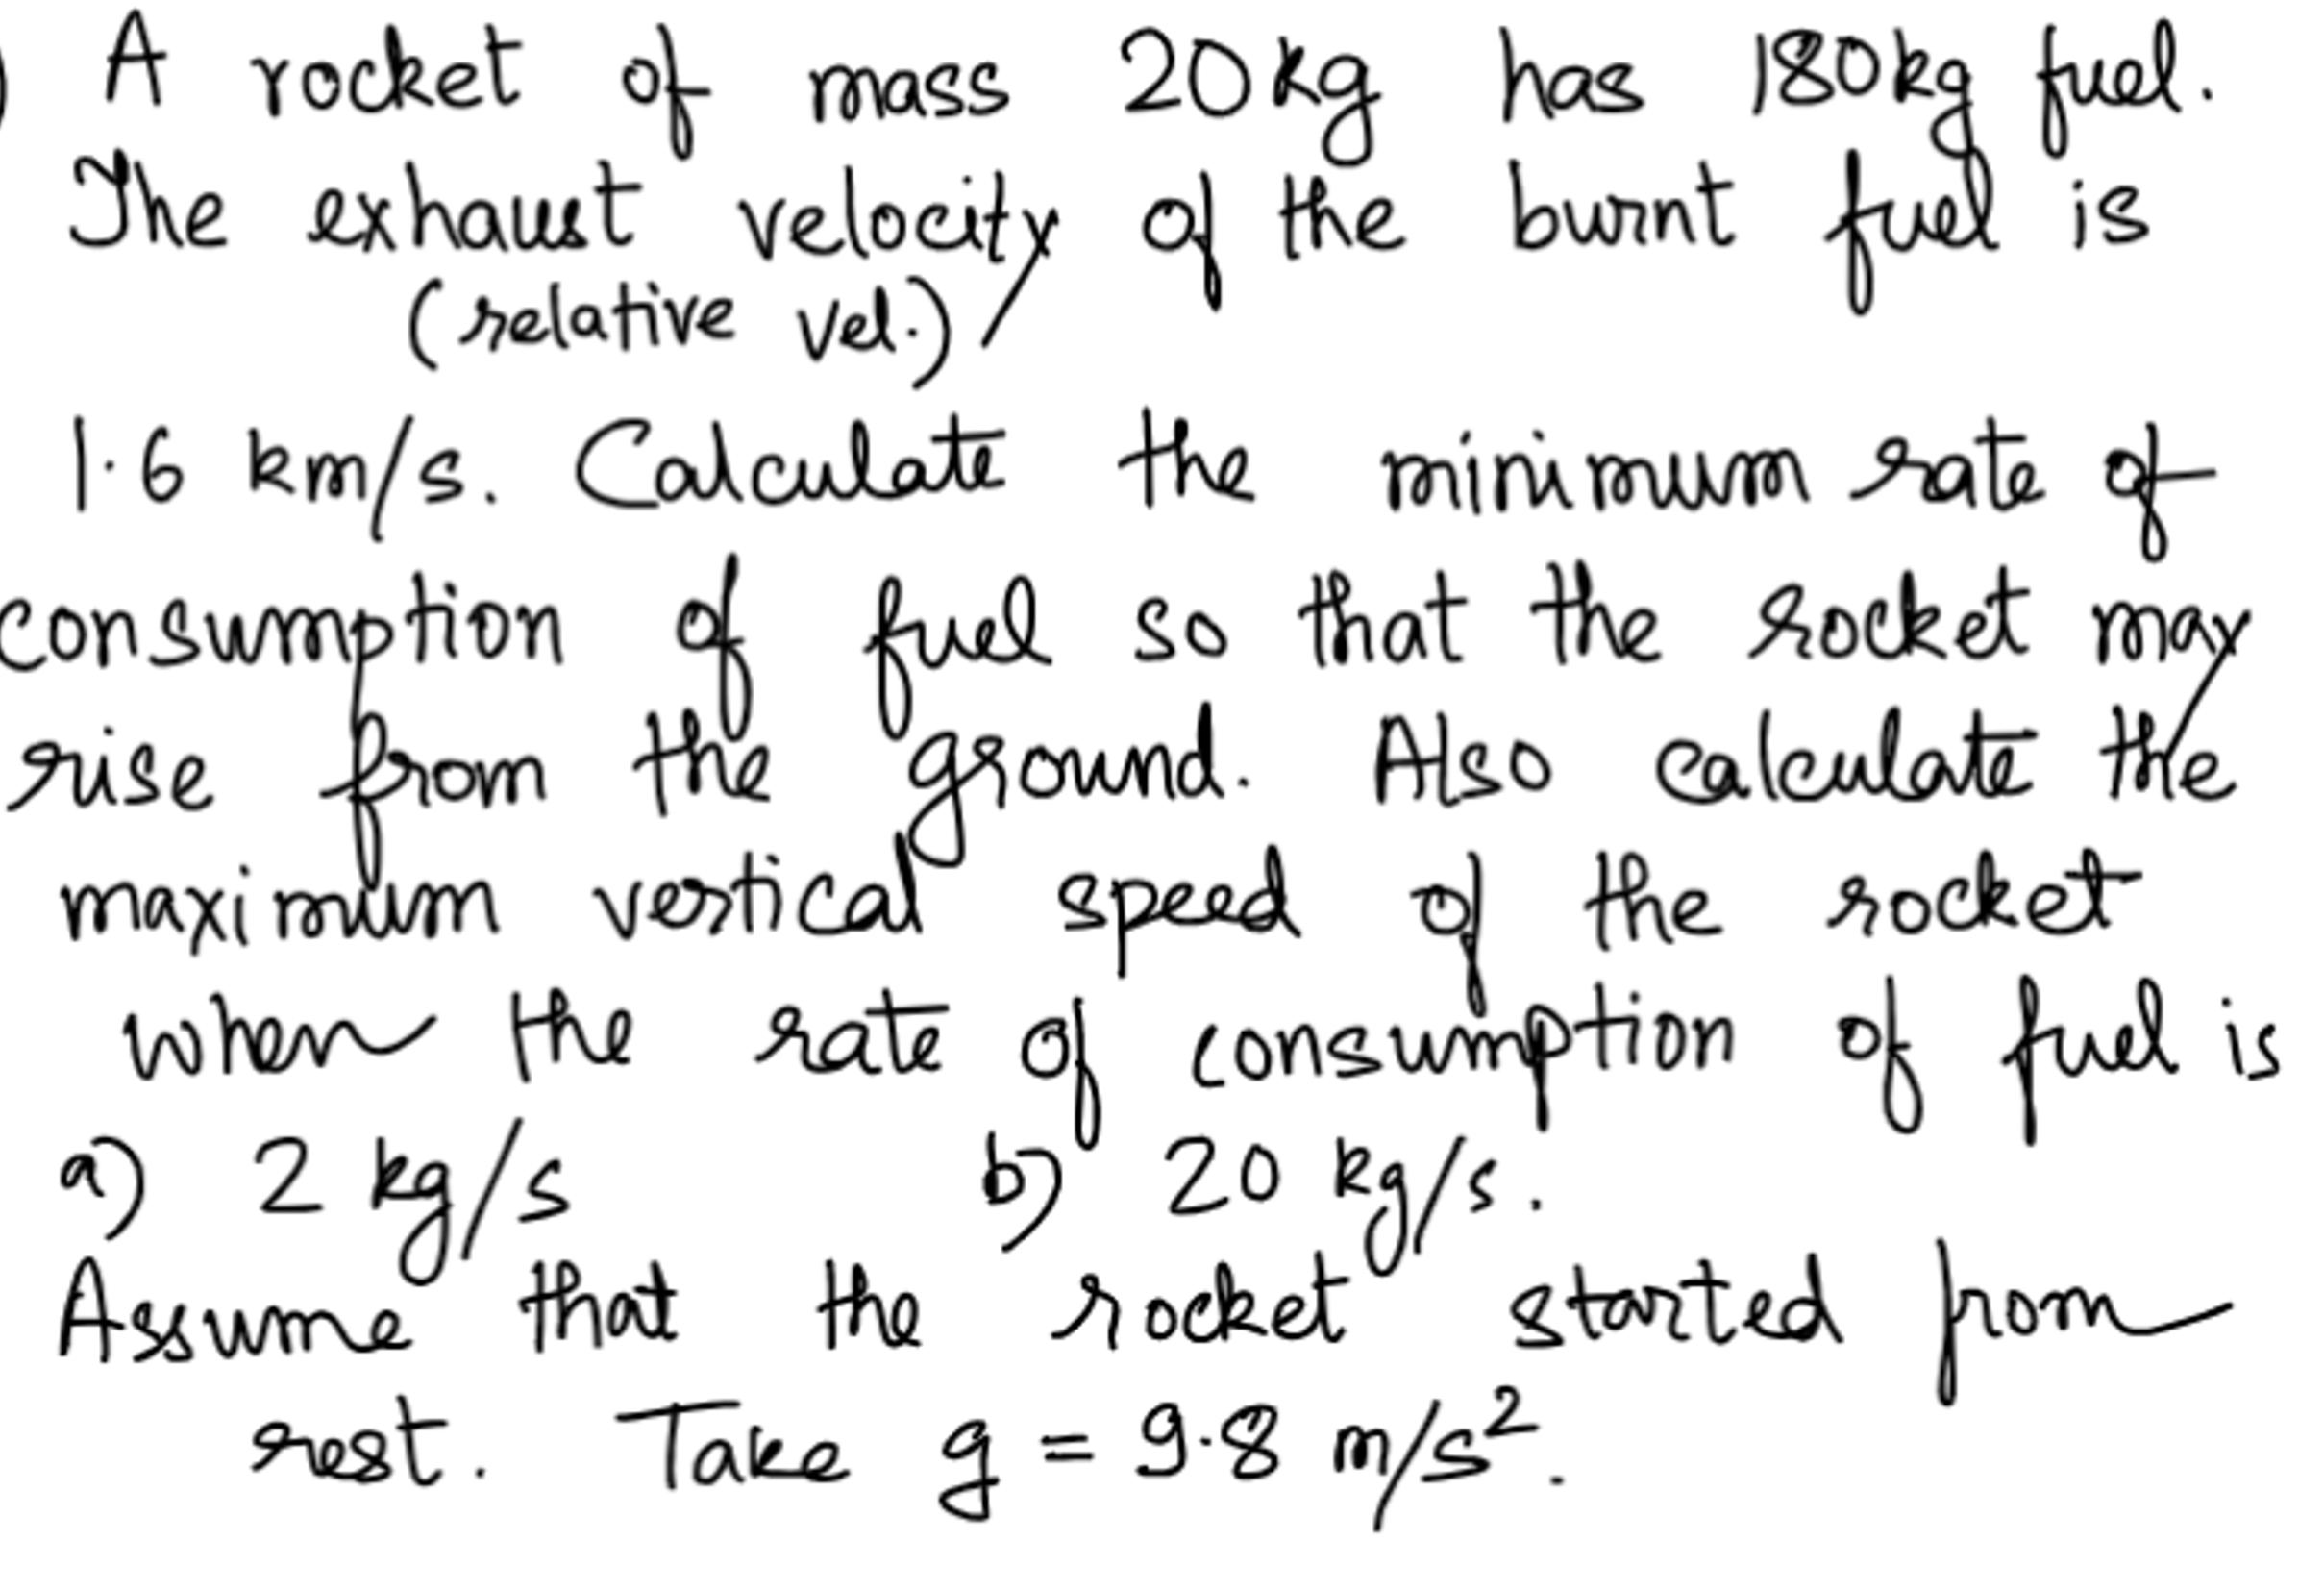 ) A rocket of mass 20kg has 180kg fuel.
The exhaust velocity of the burnt fuel is
(relative vel.)
1.6 km/s. Calculate the minimum rate of
consumption of fuel so that the rocket may
rise from the ground. Also calculate the
maximum vertical speed of the rocket
when the rate of consumption of fuel is
a) 2 kg/s b) 20 kg/s.
Assume that the rocket started from
rest. Take g = 9.8 m/s².